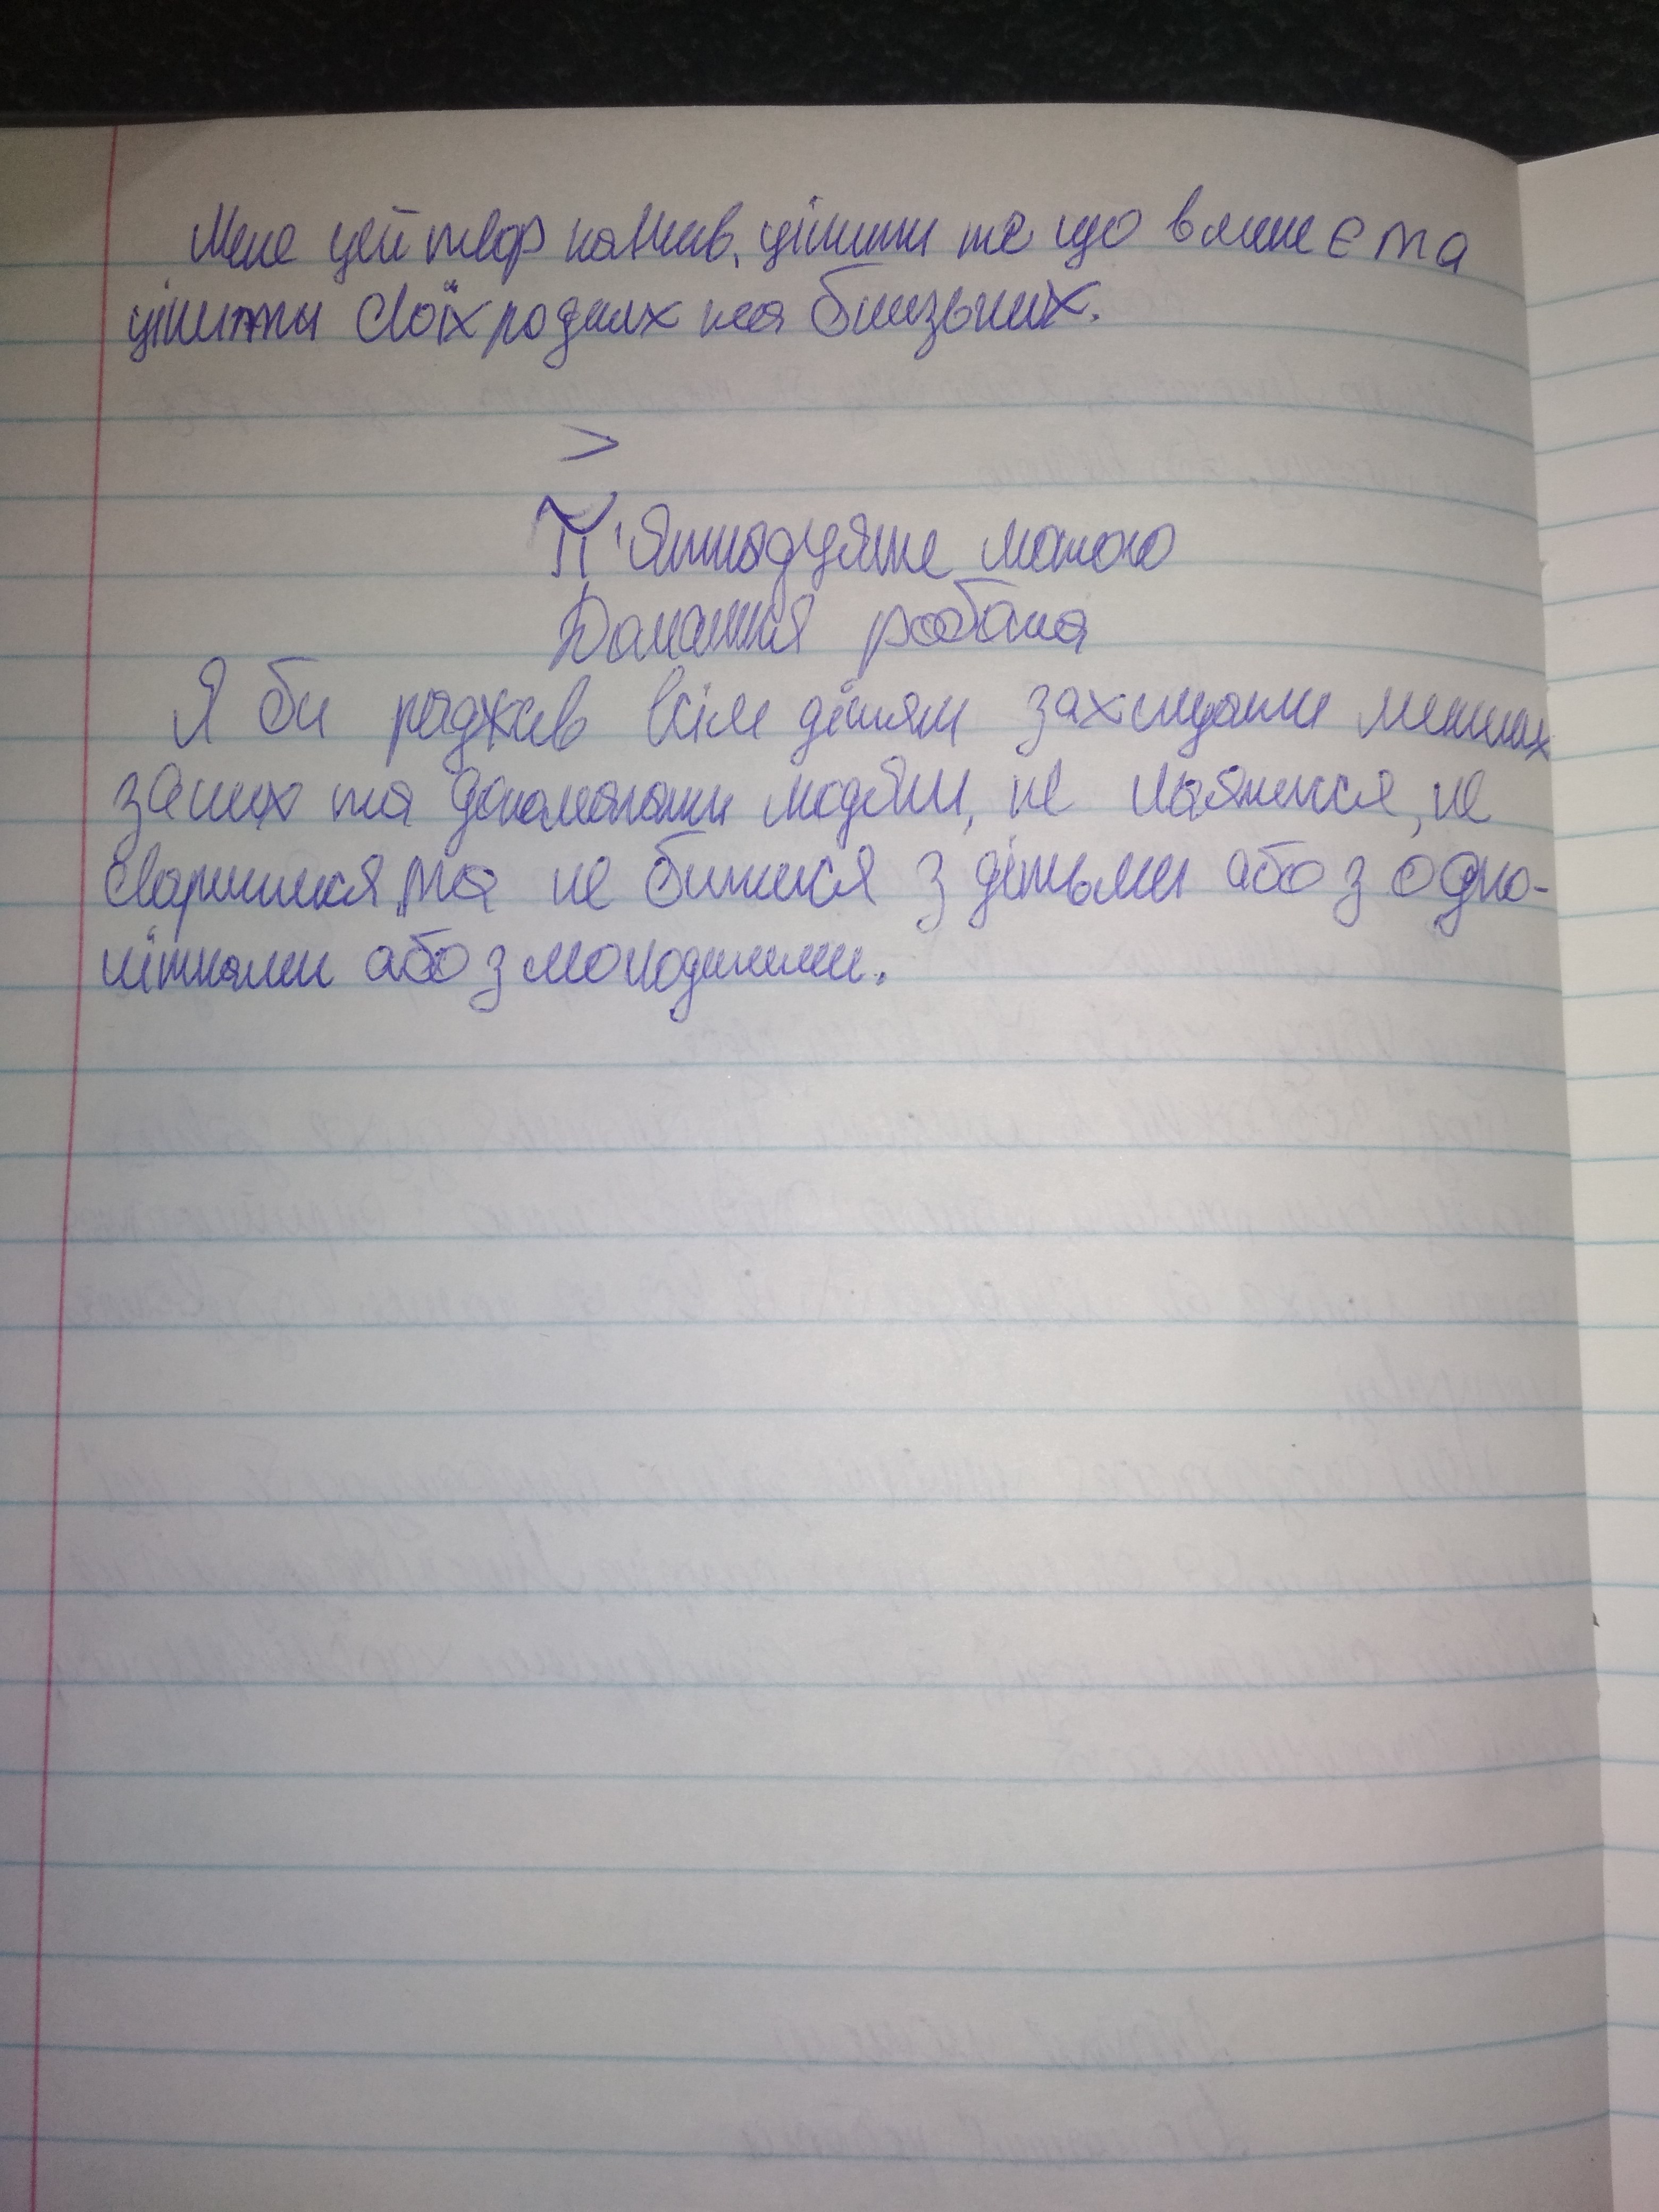 Мене цей твор навчив, цінити те що в мене є та
цінити своїх родних та близьких.
П'ятнадцяте лютого
Домашня робота
Я би раджав всім дітям захищати менших
за них та допомагати людям, не лаятися, не
сваритися, та не битися з дітьми або з одно-
літками або з молодшими.